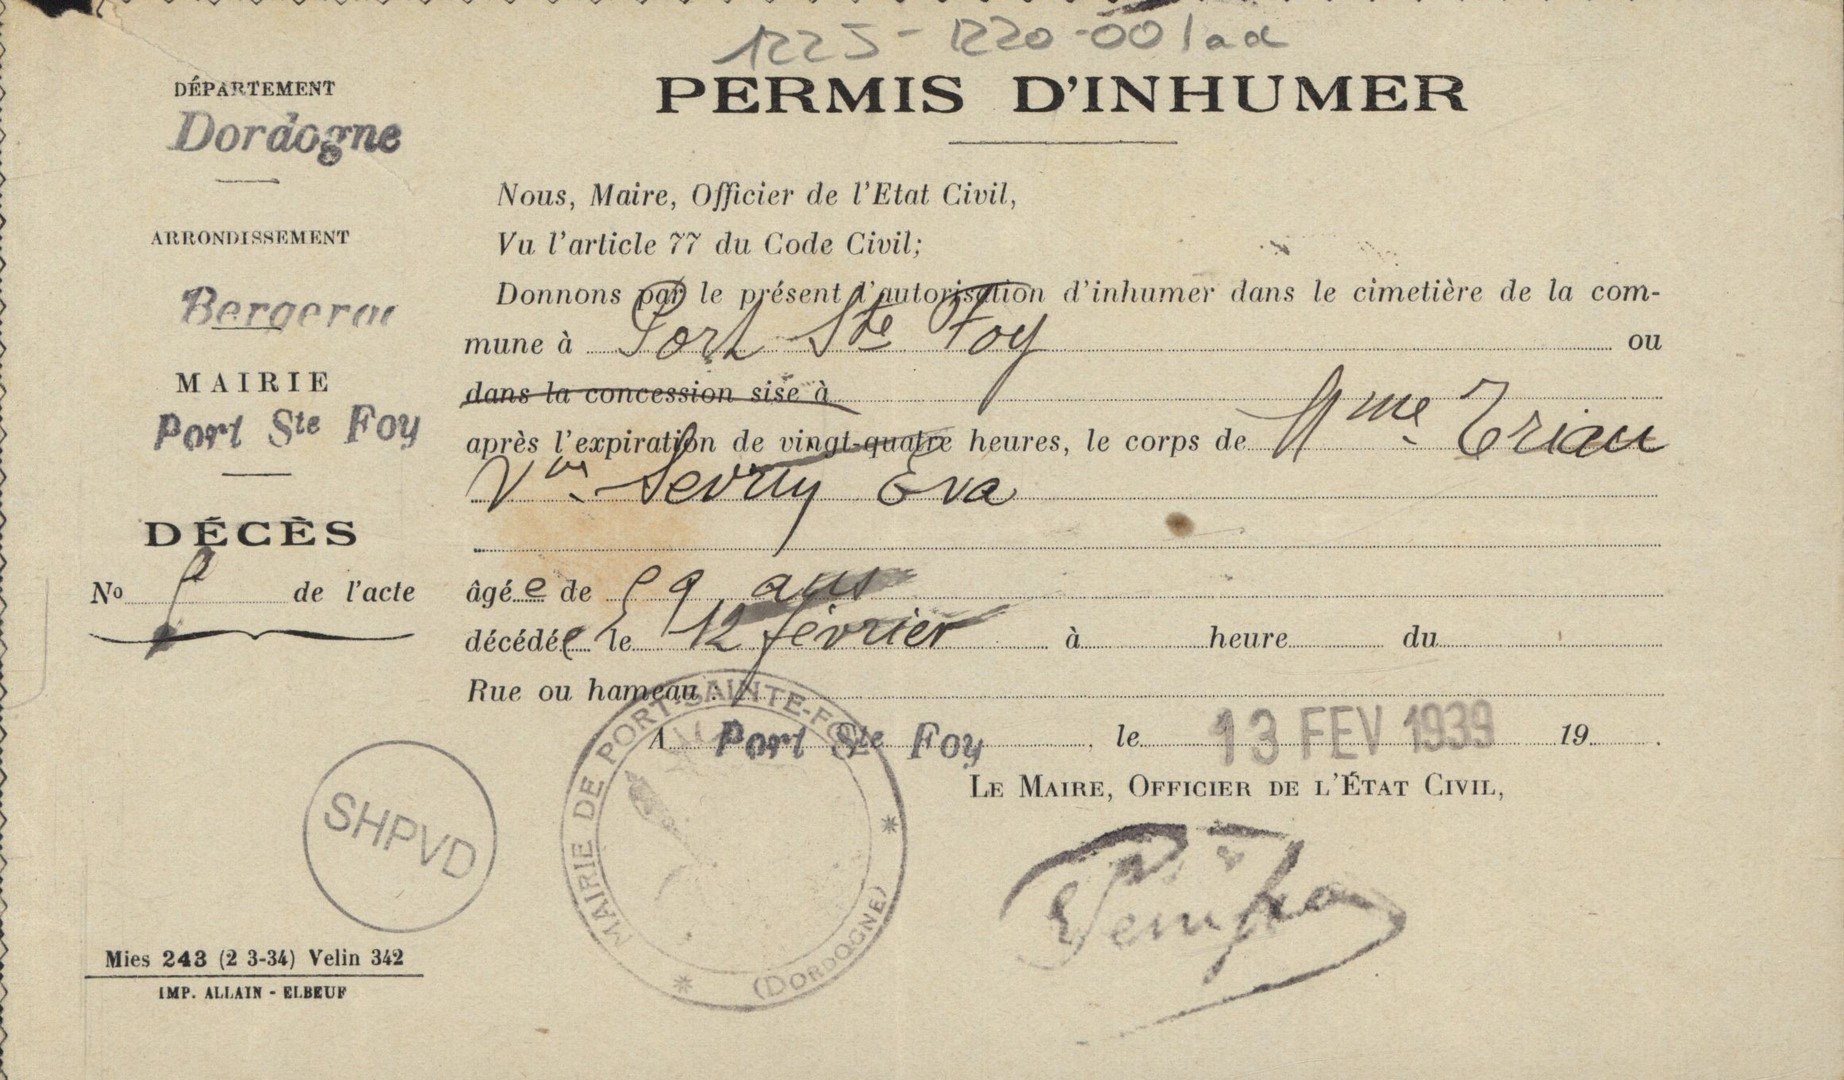 1225-1220-001ad
PERMIS D'INHUMER
DÉPARTEMENT
Dordogne
ARRONDISSEMENT
Bergerac
MAIRIE
Port Ste Foy
DÉCÈS
No de l'acte
Nous, Maire, Officier de l'Etat Civil,
Vu l'article 77 du Code Civil;
Donnons par le présent l'autorisation d'inhumer dans le cimetière de la com-
mune à Port Ste Foy ou
dans la concession sise à
après l'expiration de vingt-quatre heures, le corps de Mme Eriau
Vve Eva
âgée de 59 ans
décédée le 12 février à heure du
Rue ou hameau :
A Port Ste Foy, le 13 FEV 1939 19 .
LE MAIRE, OFFICIER DE L'ÉTAT CIVIL,
MAIRIE DE PORT-SAINTE-FOY
(DORDOGNE)
SHPVD
Mies 243 (2 3-34) Velin 342
IMP. ALLAIN - ELBEUF